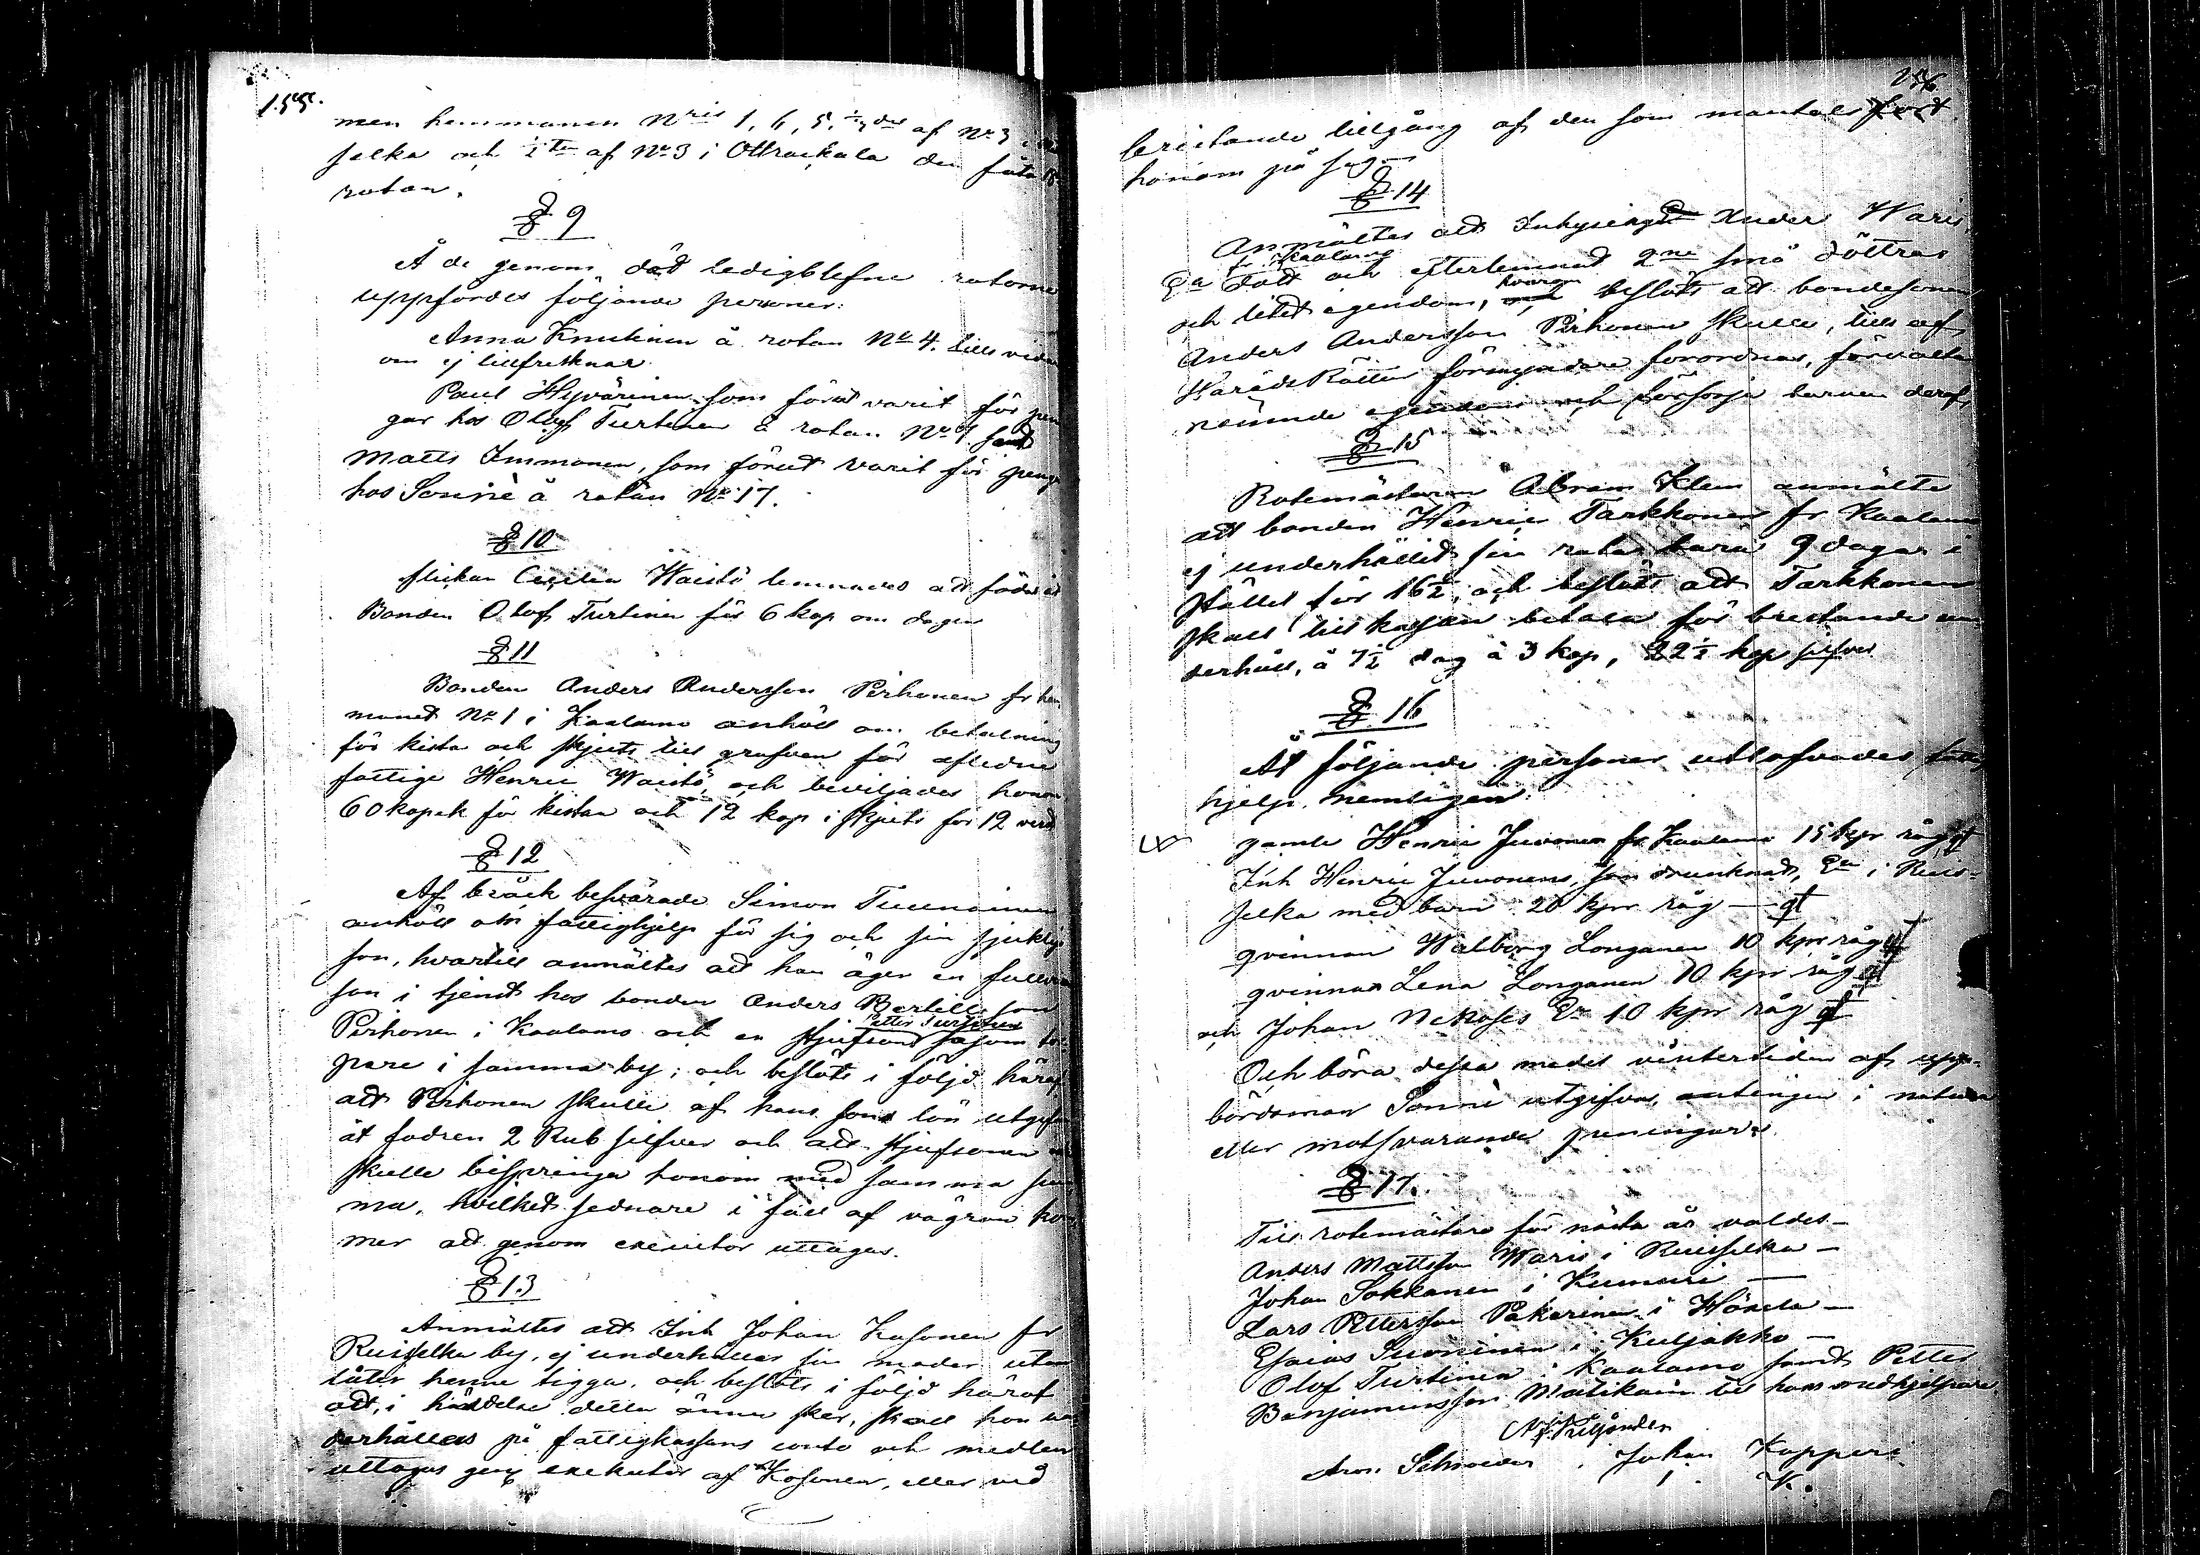 155.
men hemmanen Nris 1, 6, 5, af No 3 i
selka och af No 3 i Ottrackala den
rotan.
§ 9
Å de genom död ledigblefne rotorne
uppfördes följande personer:
Anna Knutinen å rotan No 4. tills vidare
om ej tillfrisknar
Paul Hyvärinen som förut varit för pen
gar hos Olof Turtinen å rotan No samt
Matts Immonen, som förut varit för
hos Sonnè å rotan No 17.
§ 10
flickan Cecilia Waistö lemnades att födas åt
Bonden Olof Turtinen för 6 kop om dagen
§ 11
Bonden Anders Andersson Pirhonen fr hem
manet No 1 i Kaalamo anhöll om betalning
för kista och skjuts till grafven för aflidne
fattige Henric Waistö, och beviljades honom
60 kopek för kistan och 12 kop i skjuts för 12 verst
§ 12
Af bråck besvärade Simon
anhöll om fattighjelp för sig och sin sjuklige
son, hvartill anmältes att han äger en fullvuxen
son i tjenst hos bonden Anders Bertilsson
Petter Turtinen
Pirhonen i Kaalamo och en stjufson såsom tor-
pare i samma by; och beslöts i följd häraf,
att Pirhonen skulle af hans sons lön utgifva
åt fadren 2 Rub silfver och att stjufsonen
skulle bispringa honom med samma sum
ma, hvilket sednare i fall af vägran kom
mer att genom executor uttagas.
§ 13
Anmältes att Inh Johan Kosonen fr
Ruisselka by, ej underhåller sin moder utan
låter henne tigga, och beslöts i följd häraf
att, i händelse detta ännu sker, skall hon un
derhållas på fattigkassans conto och medlen
uttagas genom exekutor af Kosonen, eller vid
156
bristande tillgång af den som mantalsfört
honom på sig
§ 14
Anmältes att Inhysing Anders Waris
fr Kaalamo
Ea dött och efterlemnat 2ne små döttrar
och litet egendom, hvaraf beslöts att bondesonen
Anders Andersson Pirhonen skulle, tills af
HäradsRätten förmyndare förordnas, förvalta
nämnde egendom och försörja barnen deraf,
§ 15
Rotemästaren Abram Klem anmälte
att bonden Henric Tarkkonen fr Kaalamo
ej underhållit sin rota bara 9 dagar i
stället för 16½, och beslöts att Tarkkonen
skall till kassan betala för bristande un
derhåll, å 7½ dag à 3 kop, 22½ kop silfver
§ 16
Åt följande personer utlofvades fattig
hjelp nemligen
gamle Henric Juvonen fr Kaalamo 15 kpr råg
Inh Henric Juvonens, som drunknat, Ea i Ruis-
selka med barn 20 kpr råg —
qvinnan Walborg Longanen 10 kpr råg
qvinnan Lena Longanen 10 kpr råg
och Johan Ea 10 kpr råg
Och böra dessa medel vintertiden af upp-
bördsman Sonnè utgifvas, antingen i natura
eller motsvarande penningar.
§ 17.
Till rotemästare för nästa år valdes —
Anders Mattsson Waris i Ruisselka —
Johan Sokkanen i Kumuri —
Lars Pettersson Pakarinen i Hämla —
Esaias Suoninen i Kuljakko —
Olof Turtinen i Kaalamo samt Petter
Benjaminsson Matikain till hans medhjelpare.
Aron Schroeder Johan Kopperi
K.